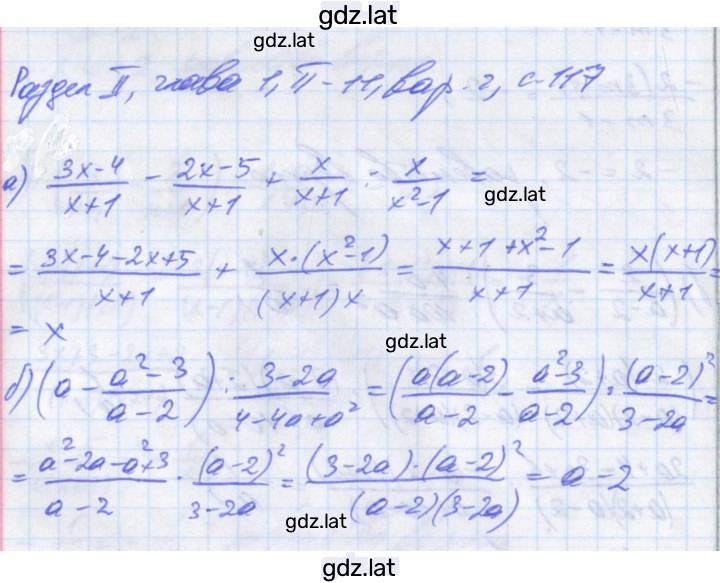 gdz.lat
gdz.lat
Раздел II, глава 1, П-11, вар. 2, с. 117
а) (3x-4)/(x+1) - (2x-5)/(x+1) + x/(x+1) : x/(x²-1) =
gdz.lat
= (3x-4-2x+5)/(x+1) + (x·(x²-1))/((x+1)x) = (x+1+x²-1)/(x+1) = (x(x+1))/(x+1) =
= x
gdz.lat
б) (a - (a²-3)/(a-2)) : (3-2a)/(4-4a+a²) = ((a(a-2))/(a-2) - (a²-3)/(a-2)) · (a-2)²/(3-2a) =
= (a²-2a-a²+3)/(a-2) · (a-2)²/(3-2a) = ((3-2a)·(a-2)²)/((a-2)(3-2a)) = a-2
gdz.lat
gdz.lat